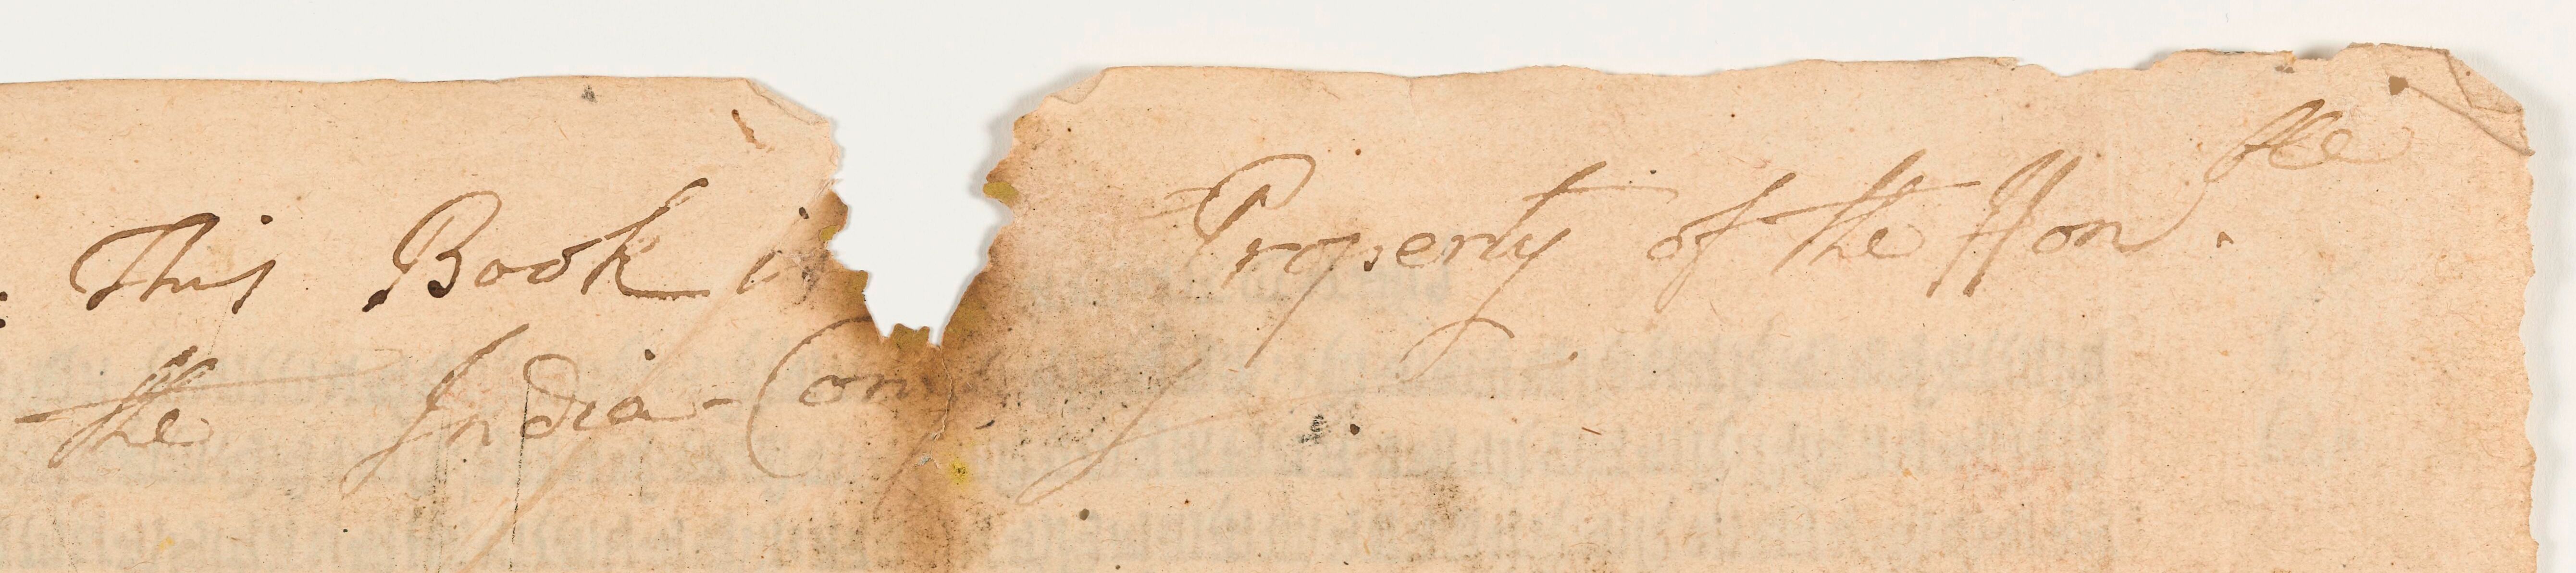 This Book is Property of the Hon.ble
the India-Company